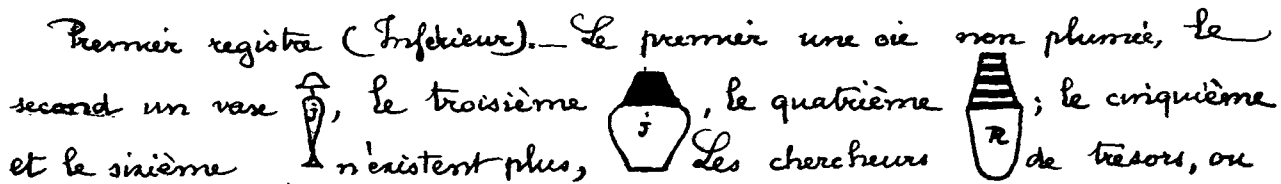 Premier registre (Inférieur). — Le premier une oie non plumée, le
second un vase j, le troisième j, le quatrième R; le cinquième
et le sixième n'existent plus, Les chercheurs de trésors, ou